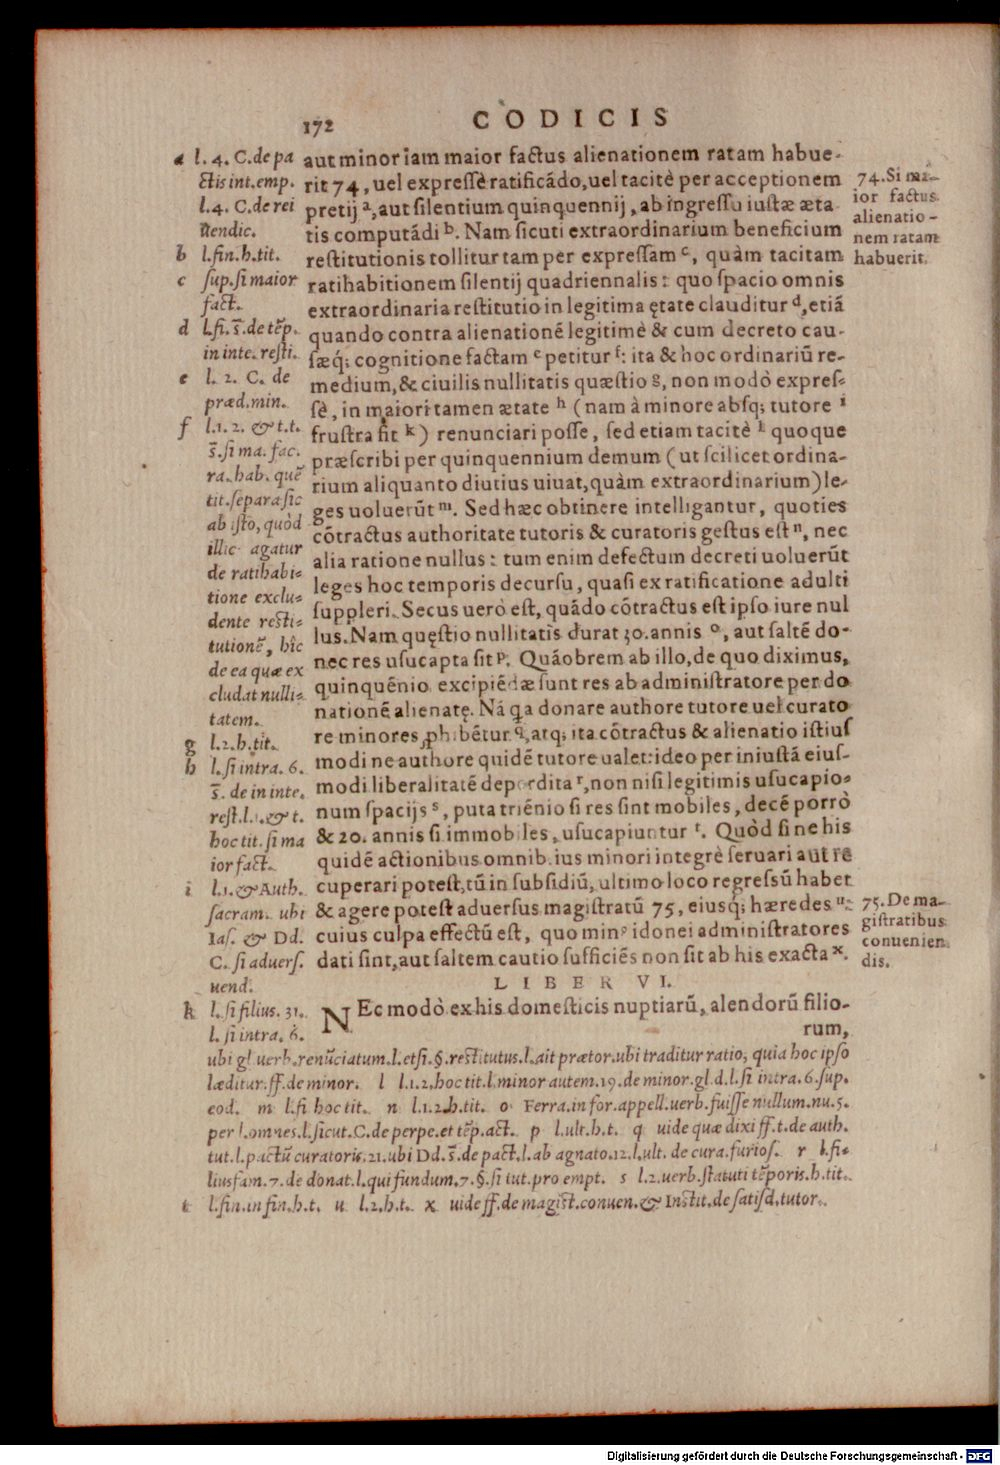 172 CODICIS
aut minor iam maior factus alienationem ratam habue-
rit 74, uel expreſſè ratificādo, uel tacitè per acceptionem
pretij ᵃ, aut ſilentium quinquennij, ab ingreſſu iuſtæ æta
tis computādi ᵇ. Nam ſicuti extraordinarium beneficium
reſtitutionis tollitur tam per expreſſam ᶜ, quàm tacitam
ratihabitionem ſilentij quadriennalis: quo ſpacio omnis
extraordinaria reſtitutio in legitima ętate clauditur ᵈ, etiā
quando contra alienationē legitimè & cum decreto cau-
ſæq́; cognitione factam ᵉ petitur ᶠ: ita & hoc ordinariū re-
medium, & ciuilis nullitatis quæſtio ᵍ, non modò expreſ-
ſè, in maiori tamen ætate ʰ (nam à minore abſq; tutore ⁱ
fruſtra fit ᵏ) renunciari poſſe, ſed etiam tacitè ˡ quoque
præſcribi per quinquennium demum (ut ſcilicet ordina-
rium aliquanto diutius uiuat, quàm extraordinarium) le-
ges uoluerūt ᵐ. Sed hæc obtinere intelligantur, quoties
cōtractus authoritate tutoris & curatoris geſtus eſt ⁿ, nec
alia ratione nullus: tum enim defectum decreti uoluerūt
leges hoc temporis decurſu, quaſi ex ratificatione adulti
ſuppleri. Secus uerò eſt, quādo cōtractus eſt ipſo iure nul
lus. Nam quęſtio nullitatis durat 30. annis ᵒ, aut ſaltē do-
nec res uſucapta ſit ᵖ. Quāobrem ab illo, de quo diximus,
quinquēnio excipiēdæ ſunt res ab adminiſtratore per do
nationē alienatę. Nā qa donare authore tutore uel curato
re minores ꝓhibētur q, atq; ita cōtractus & alienatio iſtiuſ
modi ne authore quidē tutore ualet: ideo per iniuſtā eiuſ-
modi liberalitatē deperdita ʳ, non niſi legitimis uſucapio-
num ſpacijs ˢ, puta triēnio ſi res ſint mobiles, decē porrò
& 20. annis ſi immobiles, uſucapiuntur ᵗ. Quòd ſi ne his
quidē actionibus omnib. ius minori integrè ſeruari aut re
cuperari poteſt, tū in ſubſidiū, ultimo loco regreſſū habet
& agere poteſt aduerſus magiſtratū 75, eiusq́; hæredes ᵘ:
cuius culpa effectū eſt, quo minꝰ idonei adminiſtratores
dati ſint, aut ſaltem cautio ſufficiēs non ſit ab his exacta ˣ.
LIBER VI.
NEc modò ex his domeſticis nuptiarū, alendorū filio-
rum,
74. Si ma-
ior factus
alienatio-
nem ratam
habuerit.
75. De ma-
giſtratibus
conuenien
dis.
a l. 4. C. de pa
ctis int. emp.
l. 4. C. de rei
uendic.
b l. fin. h. tit.
c ſup. ſi maior
fact.
d l. fi. s̄. de tēp.
in inte. reſti.
e l. 2. C. de
præd. min.
f l. 1. 2. & t. t.
s̄. ſi ma. fac.
ra. hab. quē
tit. ſepara ſic
ab iſto, quòd
illic agatur
de ratihabi-
tione exclu-
dente reſti-
tutionē, hîc
de ea quæ ex
cludat nulli-
tatem.
g l. 2. h. tit.
h l. ſi intra. 6.
s̄. de in inte.
reſt. l. 1. & t.
hoc tit. ſi ma
ior fact.
i l. 1. & Auth.
ſacram. ubi
Iaſ. & Dd.
C. ſi aduerſ.
uend.
k l. ſi filius. 31.
l. ſi intra. 6.
ubi gl. uerb. renūciatum. l. etſi. §. reſtitutus. l. ait prætor. ubi traditur ratio, quia hoc ipſo
læditur. ff. de minor. l l. 1. 2. hoc tit. l. minor autem. 19. de minor. gl. d. l. ſi intra. 6. ſup.
eod. m l. fi hoc tit. n l. 1. 2. h. tit. o Ferra. in for. appell. uerb. fuiſſe nullum. nu. 5.
per l. omnes. l. ſicut. C. de perpe. et tēp. act. p l. ult. h. t. q uide quæ dixi ff. t. de auth.
tut. l. pactū curatoris. 21. ubi Dd. s̄. de pact. l. ab agnato. 12. l. ult. de cura. furioſ. r l. fi-
liusfam. 7. de donat. l. qui fundum. 7. §. ſi tut. pro empt. s l. 2. uerb. ſtatuti tēporis. h. tit.
t l. fin. in fin. h. t. u l. 2. h. t. x uide ff. de magiſt. conuen. & Inſtit. de ſatiſd. tutor.
Digitalisierung gefördert durch die Deutsche Forschungsgemeinschaft - DFG